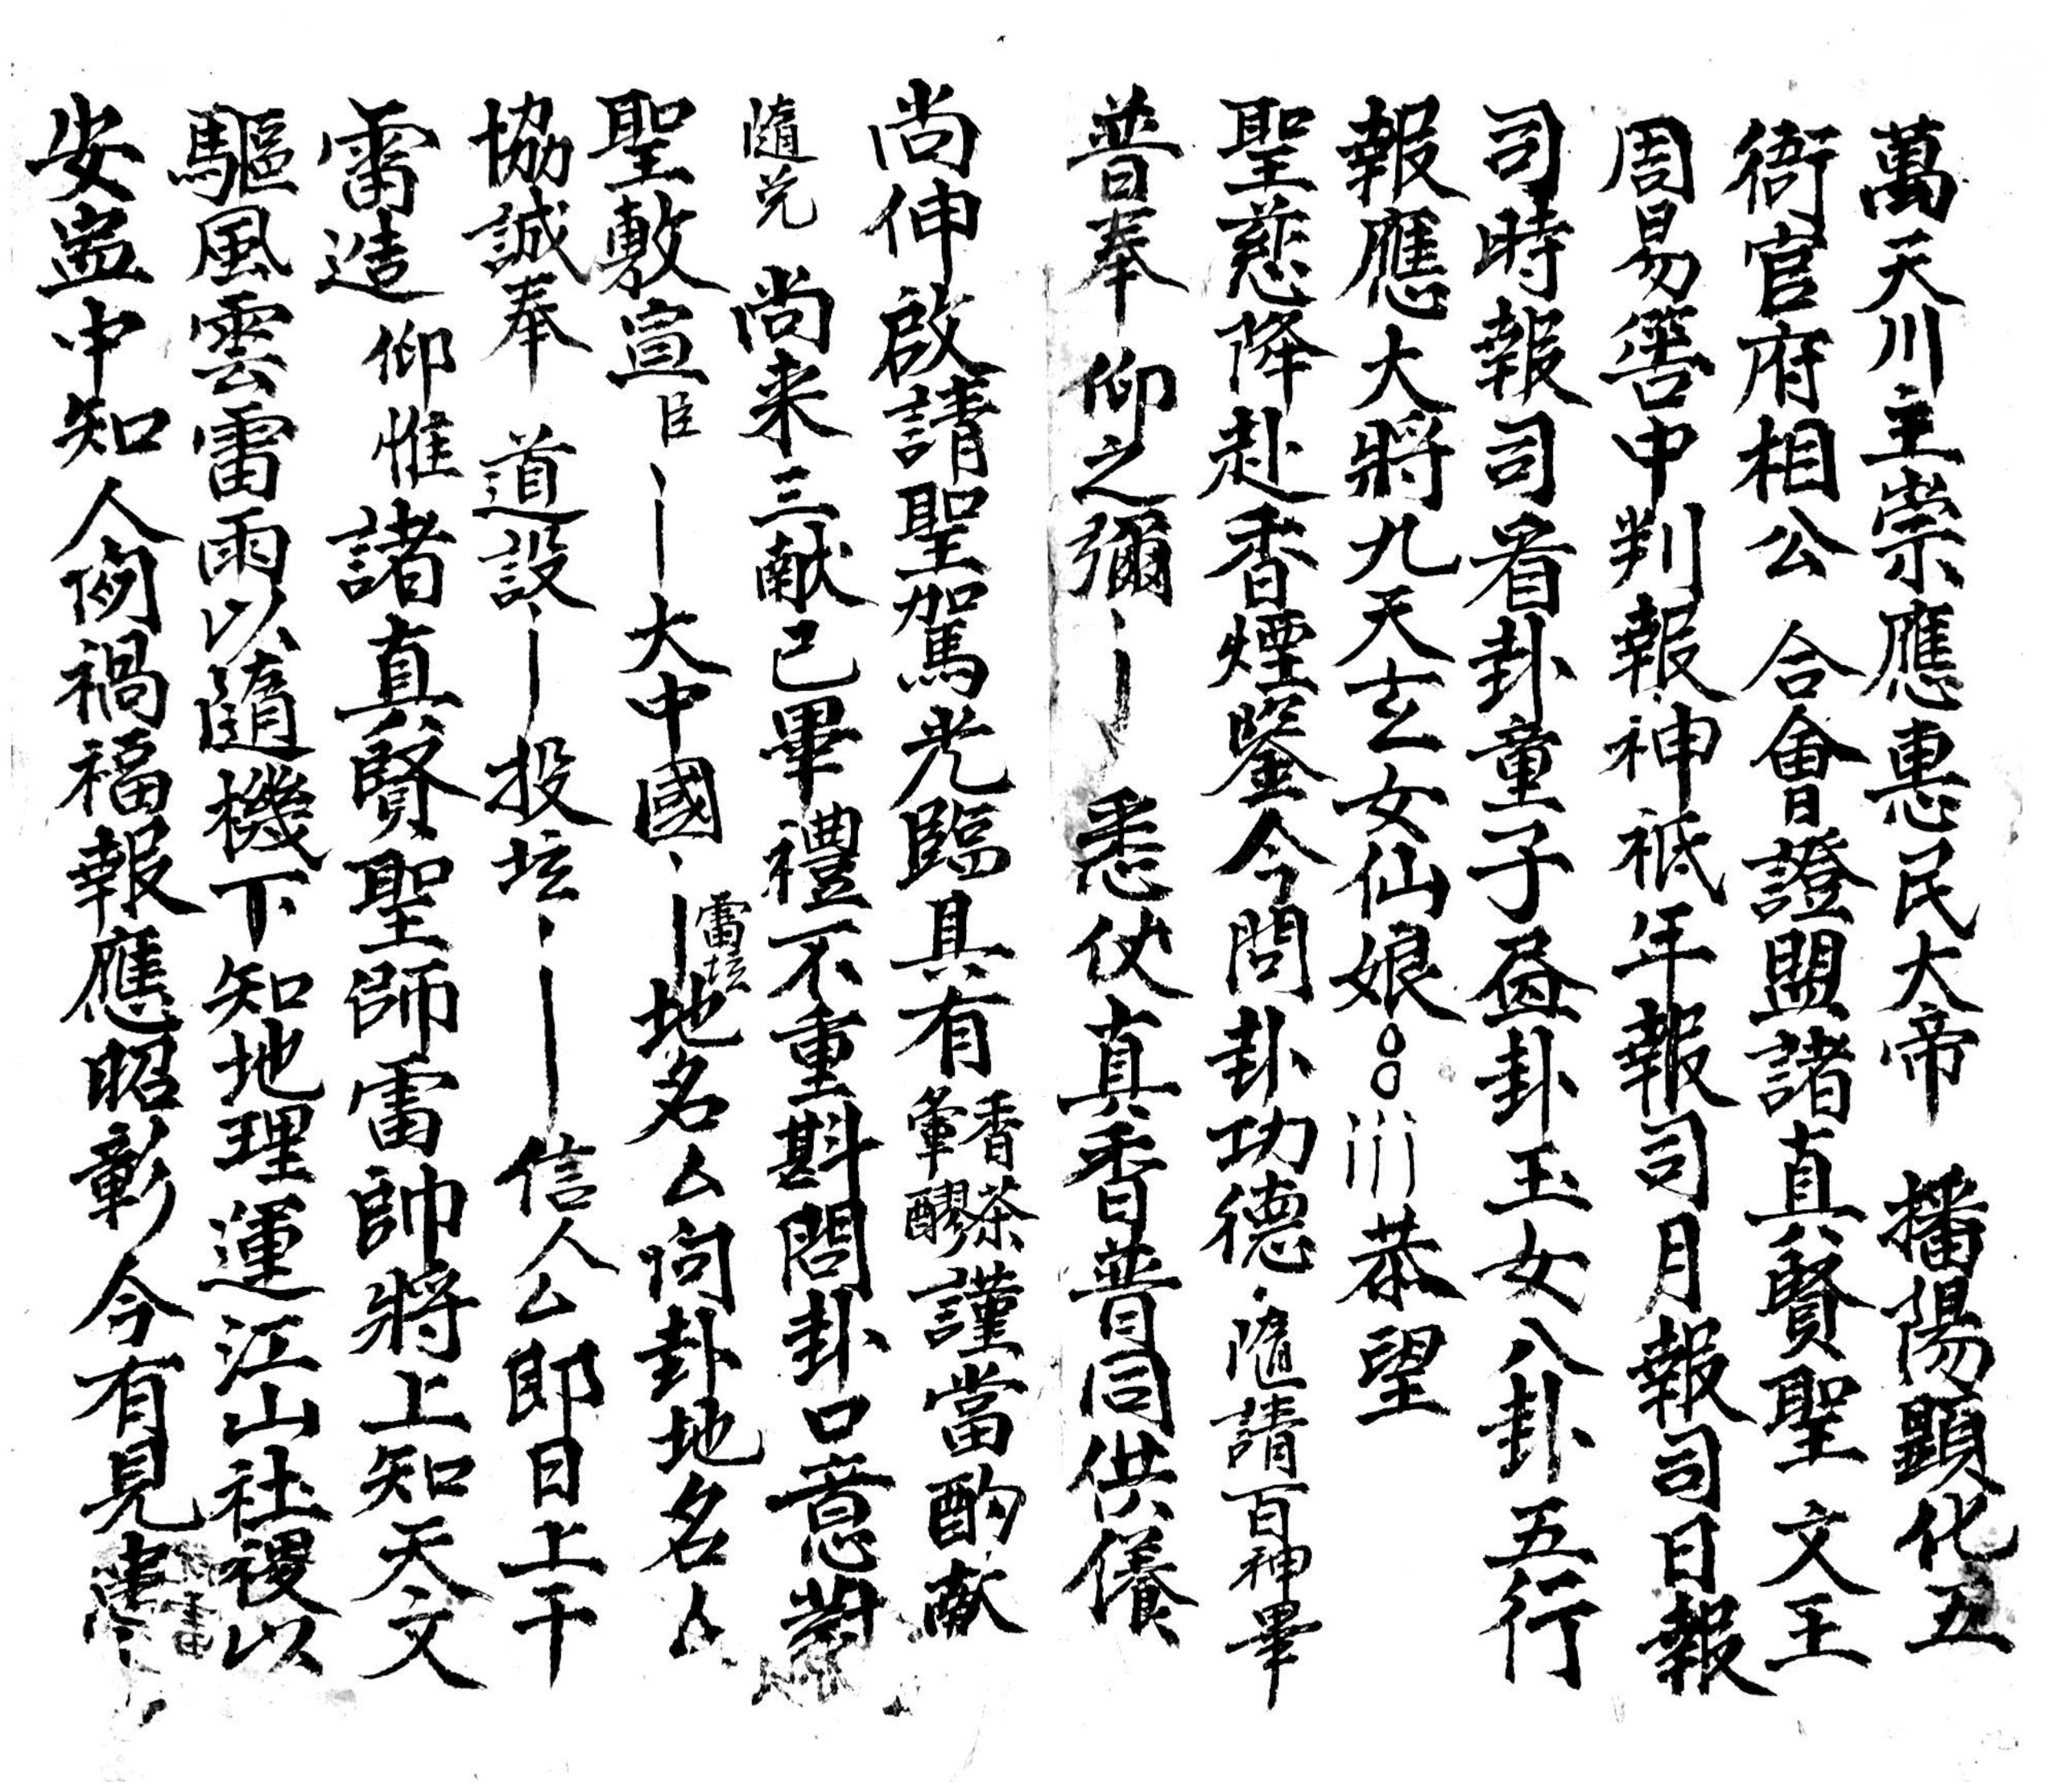 萬天川主崇應惠民大帝 播陽顯化五
衙官府相公 合會證盟諸真賢聖文王
周易籌中判報神祇年報司月報司日報
司時報司看卦童子叠卦玉女八卦五行
報應大將九天玄女仙娘 恭望
聖慈降赴香煙鑒今問卦功德 隨請百神畢
普奉 仰之彌 悉仗真香普同供養
尚伸啟請聖駕光臨具有香茶葷醪謹當酌献
隨兄 尚来三献已畢禮不重斟問卦口意對
聖敷宣臣 大中國 雷坛地名厶向卦地名厶
協誠奉 道設 投坛 信人厶即日上干
雷造 仰惟諸真賢聖師雷帥將上知天文
驅風雲雷雨以隨機下知地理運江山社稷以
安盅中知人倒禍福報應昭彰今有見